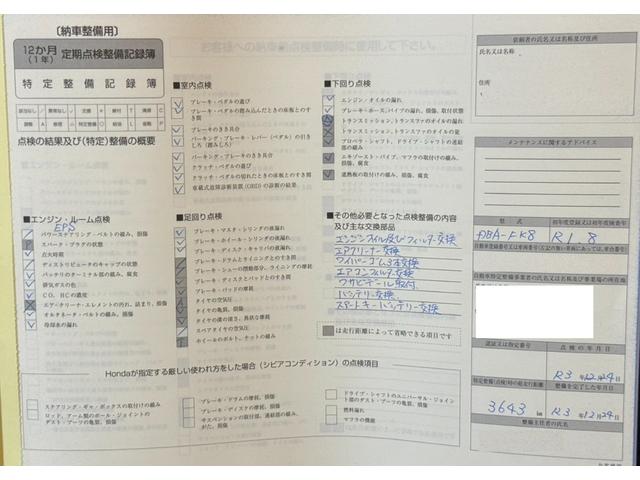 〔納車整備用〕
12か月
(1年)
定期点検整備記録簿
特定整備記録簿
点検の結果及び(特定)整備の概要
■エンジン・ルーム点検
EPS
パワーステアリング・ベルトの緩み、損傷
スパーク・プラグの状態
点火時期
ディストリビュータのキャップの状態
バッテリのターミナル部の緩み、腐食
排気ガスの色
CO、HCの濃度
エア・クリーナ・エレメントの汚れ、詰まり、損傷
オルタネータ・ベルトの緩み、損傷
冷却水の漏れ
■室内点検
ブレーキ・ペダルの遊び
ブレーキ・ペダルの踏み込んだときの床板とのすき間
ブレーキのきき具合
パーキング・ブレーキ・レバー(ペダル)の引きしろ(踏みしろ)
パーキング・ブレーキのきき具合
クラッチ・ペダルの遊び
クラッチ・ペダルの切れたときの床板とのすき間
車載式故障診断装置(OBD)の診断の結果
■足回り点検
ブレーキ・マスタ・シリンダの液漏れ
ブレーキ・ホイール・シリンダの液漏れ
ブレーキ・ディスク・キャリパの液漏れ
ブレーキ・ドラムとライニングとのすき間
ブレーキ・シューの摺動部分、ライニングの摩耗
ブレーキ・ディスクとパッドとのすき間
ブレーキ・パッドの摩耗
タイヤの空気圧
タイヤの亀裂、損傷
タイヤの溝の深さ、異状な摩耗
スペアタイヤの空気圧
ホイールのボルト、ナットの緩み
■下回り点検
エンジン・オイルの漏れ
ブレーキ・ホース、パイプの漏れ、損傷、取付状態
トランスミッション、トランスファのオイルの漏れ
トランスミッション、トランスファのオイルの量
プロペラ・シャフト、ドライブ・シャフトの連結部の緩み
エキゾースト・パイプ、マフラの取付けの緩み、損傷、腐食
遮熱板の取付けの緩み、損傷、腐食
■その他必要となった点検整備の内容及び主な交換部品
エンジンオイル及びフィルター交換
エアクリーナー交換
ワイパーゴム3本交換
エアコンフィルター交換
ワサビデール取付
バッテリー交換
スマートキーバッテリー交換
は走行距離によって省略できる項目です
Hondaが指定する厳しい使われ方をした場合(シビアコンディション)の点検項目
ステアリング・ギヤ・ボックスの取付けの緩み
ロッド、アーム類のボール・ジョイントのダスト・ブーツの亀裂、損傷
ブレーキ・ドラムの摩耗、損傷
ブレーキ・ディスクの摩耗、損傷
サスペンションの取付部、連結部の緩み、がた、損傷
ドライブ・シャフトのユニバーサル・ジョイント部のダスト・ブーツの亀裂、損傷
燃料漏れ
マフラの機能
依頼者の氏名又は名称及び住所
氏名又は名称
住所
メンテナンスに関するアドバイス
型式
初年度登録又は初度検査年
DBA-FK8
R1 8
点検の年月日
R3 年12月24日
整備を完了した年月日
3643 km
R3 年12月24日
整備主任者の氏名